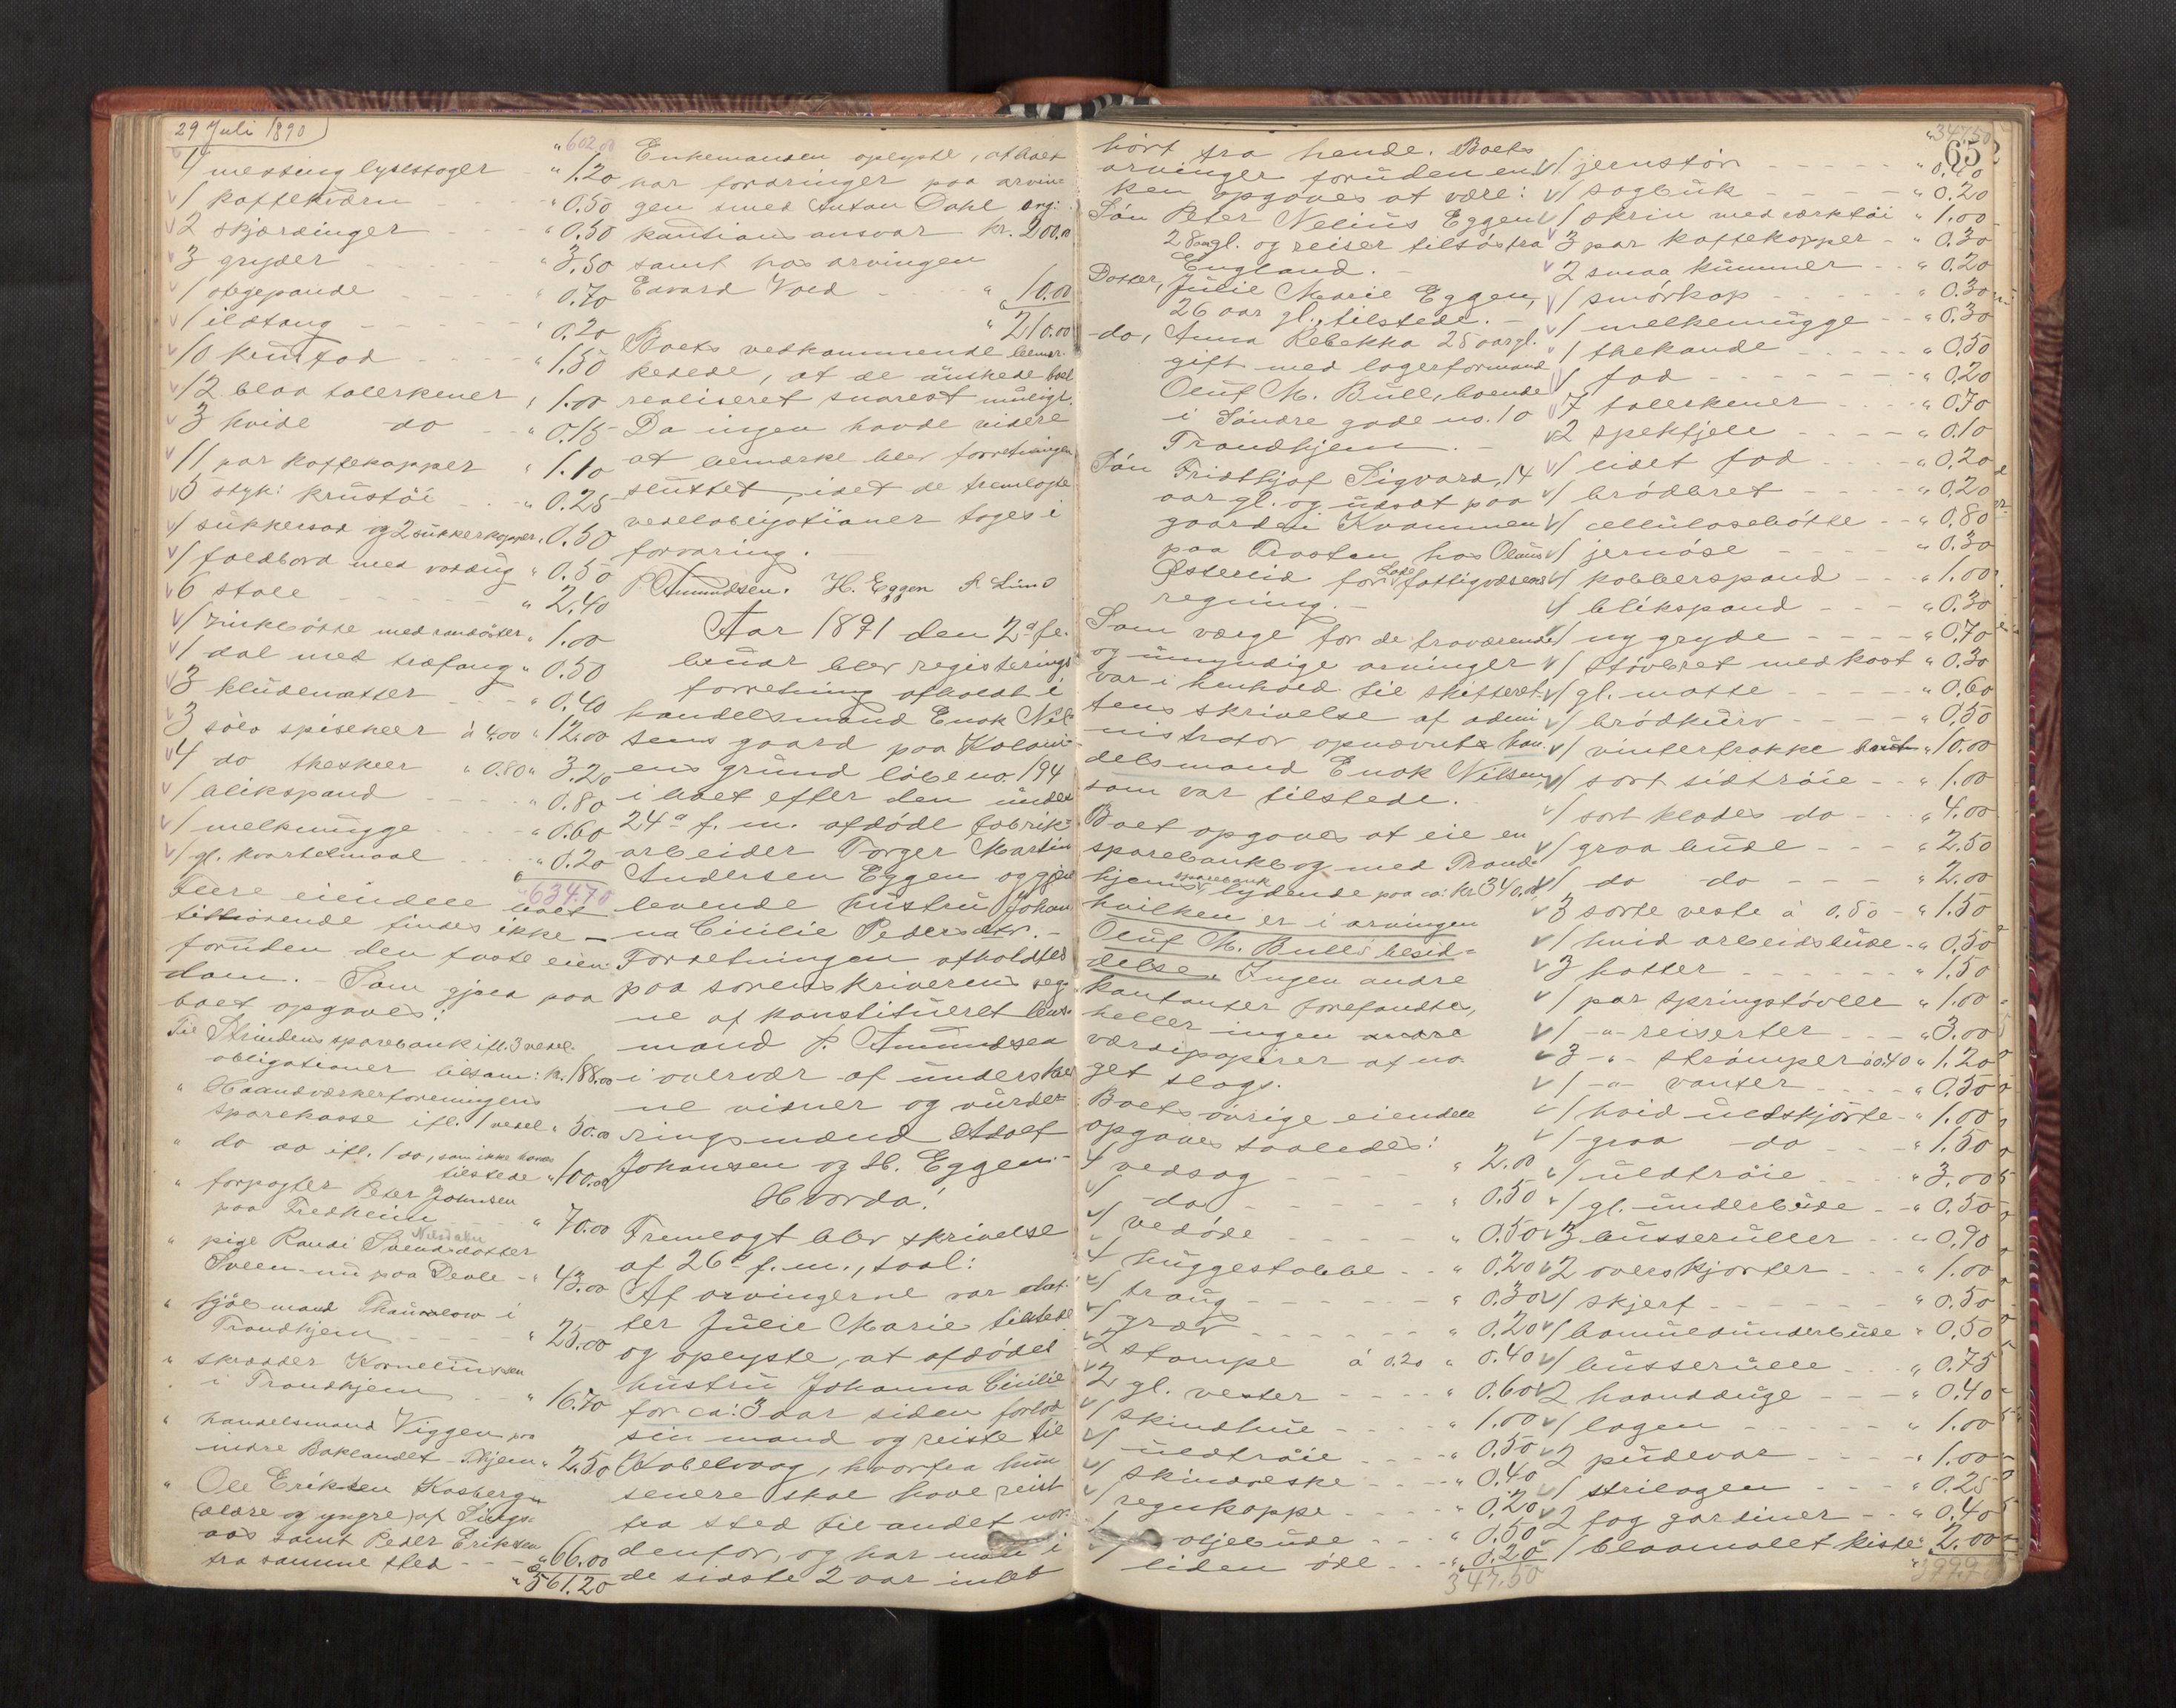 29 Juli 1890
" 602.00
4 messing lysestager " 1.20
1 kaffekværn " 0.50
2 skjæringer " 0.50
3 gryder " 3.50
1 stegepande " 0.70
1 ildtang " 0.20
10 krusfad " 1.50
12 blaa tallerkener " 1.00
3 hvide do " 0.15
11 par kaffekopper " 1.10
5 styk: krustöi " 0.25
1 sukkerfad og 2 sukkerkopper " 0.50
1 foldbord med voxdug " 0.50
6 stole " 2.40
1 zinkbötte med 1.00
1 dal med træfang " 0.50
3 kludematter " 0.40
3 sölv spiseskeer à 4.00 " 12.00
4 do theskeer " 0.80 " 3.20
1 blikspand " 0.80
1 melkemugge " 0.60
1 gl. kvartelmaal " 0.20
" 634.70
Flere eiendele boet
tilhörende findes ikke
foruden den faste eien-
dom. - Som gjæld paa
boet opgaves:
Til Strindens sparebank ifl. 3 vexel-
obligationer tilsam: kr. 188.00
" Haandværkerforeningens
sparekasse ifl. 1 vexel " 50.00
" do do ifl. 1 do, som ikke haves
tilstede " 100.00
" forpagter Peter Johnsen
paa Fredheim " 70.00
" pige Randi Svendsdatter
Nilsdatter
Sveen nu paa Devle " 43.00
" sjöl mand Thaulow i
Trondhjem " 25.00
" skrædder Korneliussen
i Trondhjem " 16.70
" handelsmand Viggen paa
indre Baklandet Thjem " 2.50
" Ole Eriksen Kosberg
(ældre og yngre) af Sings-
aas samt Peder Eriksen
fra samme sted " 66.00
" 561.20
Enkemanden oplyste, at boet
har fordringer paa arvin-
gen smed Anton Dahl ang:
kautionsansvar kr. 200.00
samt hos arvingen
Edvard Vold " 10.00
" 210.00
Boets vedkommende bemær-
kede, at de önskede boet
realiseret snarest muligt.
Da ingen havde videre
at bemærke blev forretningen
sluttet, idet de fremlagte
vexelobligationer toges i
forvaring.
P. Amundsen. H. Eggen A Lund
Aar 1891 den 2den fe-
bruar blev registerings
forretning afholdt i
handelsmand Enok Nil-
sens gaard paa Koloni-
ens grund löbe no. 194
i boet efter den under
24de f. m. afdöde fabrik-
arbeider Torger Martin
Andersen Eggen og gjen-
levende hustru Johan-
na Cicilie Pedersdtr. -
Forretningen afholdtes
paa sorenskriverens veg-
ne af konstitueret lens-
mand P. Amundsen
i overvær af underskrev-
ne vidner og vurder-
ingsmænd Adolf
Johansen og H. Eggen -
Hvorda!
Fremlagt blev skrivelse
af 26de f. m., saal:
Af arvingerne var dat-
ter Julie Marie tilstede
og oplyste, at afdödes
hustru Johanna Cicilie
for ca: 3 aar siden forlod
sin mand og reiste til
Kabelvaag, hvorfra hun
senere skal have reist
fra sted til andet nor-
denfor, og har man i
de sidste 2 aar intet
652
hört fra hende. Boets
arvinger foruden en-
ken opgaves at være:
Sön Peter Nelius Eggen
28 aar gl. og reiser tilsös fra
England. -
Dotter, Julie Marie Eggen,
26 aar gl., tilstede. -
do, Anna Rebekka 25 aar gl.
gift med lagerformand
Oluf M. Bull, boende
i Söndre gade no. 10
Trondhjem. -
Sön Fridthjof Sigvard, 14
aar gl. og udsat paa
gaarden Kvammen
paa Frosten hos Olaus
Östereid for Lade fattigvæsens
regning. -
Som værge for de fraværende
og umyndige arvinger
var i henhold til skifteret-
tens skrivelse af admi-
nistrator opnævnt han-
delsmand Enok Nilsen,
som var tilstede.
Boet opgaves at eie en
sparebankbog med Trond-
hjems sparebank, lydende paa ca: kr. 340.00
hvilken er i arvingen
Oluf M. Bulls besid-
delse. Ingen andre
kontanter forefandtes,
heller ingen andre
værdipapirer af no-
get slags.
Boets övrige eiendele
opgaves saaledes:
1 vedsag " 2.00
1 do " 0.50
1 vedöxe " 0.50
1 huggestabbe " 0.20
1 traug " 0.30
1 græv " 0.20
2 stampe à 0.20 " 0.40
2 gl. vester " 0.60
1 skindhue " 1.00
1 uldtröie " 0.50
1 skindveske " 0.40
1 regnkappe " 0.20
1 oljebuxe " 0.50
1 liden öxe " 0.20
347.50
" 347.50
1 jernstör " 0.40
1 sagbuk " 0.20
1 skrin med værktöi " 1.00
3 par kaffekopper " 0.30
2 smaa kummer " 0.20
1 smörkop " 0.30
1 melkemugge " 0.30
1 thekande " 0.50
1 fad " 0.20
7 tallerkener " 0.70
2 spekfjele " 0.10
1 lidet fad " 0.20
1 brödbret " 0.20
1 cellulosebötte " 0.80
1 jernöse " 0.30
1 kobberspand " 1.00
1 blikspand " 0.30
1 ny gryde " 0.70
1 stövbret med kost " 0.30
1 gl. matte " 0.60
1 brödkurv " 0.50
1 vinterfrakke " 10.00
1 sort sidtröie " 1.00
1 sort klædes do " 4.00
1 graa buxe " 2.50
1 do do " 2.00
3 sorte veste à 0.50 " 1.50
1 hvid arbeidsbuxe " 0.50
3 hatter " 1.50
1 par springstövler " 1.00
1 -"- reiserter " 3.00
3 -"- strömper à 0.40 " 1.20
1 -"- vanter " 0.50
1 hvid uldskjörte " 1.00
1 graa do " 1.50
1 uldtröie " 3.00
1 gl. underbuxe " 0.50
3 busseruller " 0.90
2 overskjorter " 1.00
1 skjerf " 0.50
1 bomuldsunderbuxe " 0.50
1 busserulle " 0.75
2 haandduge " 0.40
1 lagen " 1.00
2 pudevar " 1.00
1 strilagen " 0.25
2 fag gardiner " 0.40
1 blaamalet kiste " 2.00